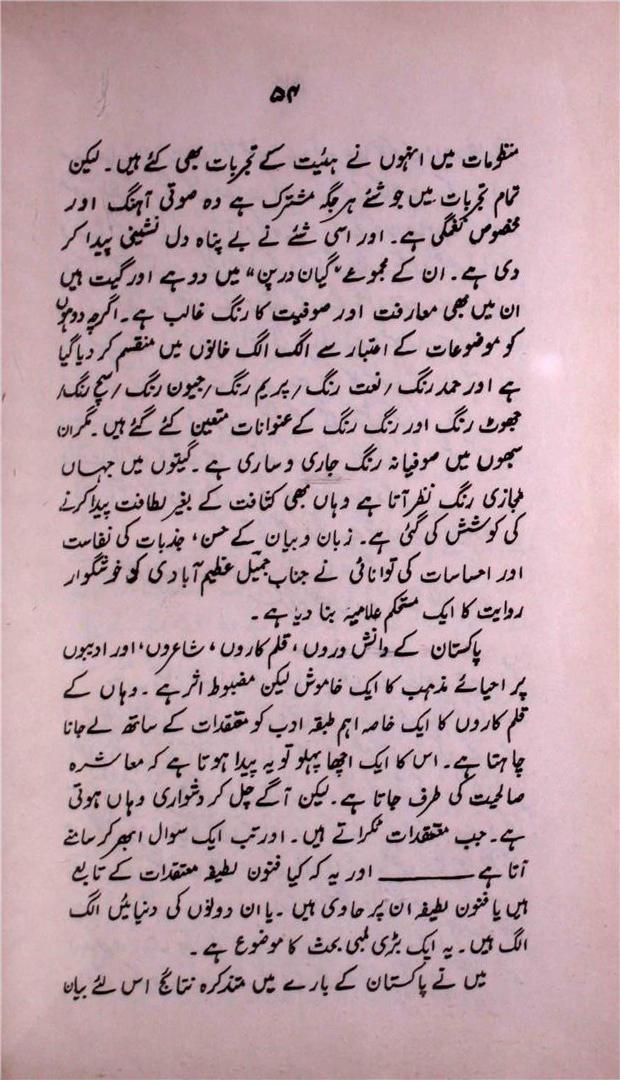 ۵۴
منظومات میں انہوں نے ہئیت کے تجربات بھی کئے ہیں۔ لیکن
تمام تجربات میں جو شئے ہر جگہ مشترک ہے وہ صوتی آہنگ اور
مخصوص نغمگی ہے۔ اور اسی شئے نے بے پناہ دل نشینی پیدا کر
دی ہے۔ ان کے مجموعے "گیان درپن" میں دوہے اور گیت ہیں
ان میں بھی معارفت اور صوفیت کا رنگ غالب ہے۔ اگرچہ دوہوں
کو موضوعات کے اعتبار سے الگ الگ خانوں میں منقسم کر دیا گیا
ہے اور حمد رنگ / نعت رنگ / پریم رنگ / جیون رنگ / سچ رنگ /
جھوٹ رنگ اور رنگ رنگ کے عنوانات متعین کئے گئے ہیں۔ مگر ان
سبھوں میں صوفیانہ رنگ جاری و ساری ہے۔ گیتوں میں جہاں
مجازی رنگ نظر آتا ہے وہاں بھی کثافت کے بغیر لطافت پیدا کرنے
کی کوشش کی گئی ہے۔ زبان و بیان کے حسن، جذبات کی نفاست
اور احساسات کی توانائی نے جناب جمیل عظیم آبادی کو خوشگوار
روایت کا ایک مستحکم علامیہ بنا دیا ہے۔
پاکستان کے دانش وروں، قلم کاروں، شاعروں، اور ادیبوں
پر احیائے مذہب کا ایک خاموش لیکن مضبوط اثر ہے۔ وہاں کے
قلم کاروں کا ایک خاصہ اہم طبقہ ادب کو معتقدات کے ساتھ لے جانا
چاہتا ہے۔ اس کا ایک اچھا پہلو تو یہ پیدا ہوتا ہے کہ معاشرہ
صالحیت کی طرف جاتا ہے۔ لیکن آگے چل کر دشواری وہاں ہوتی
ہے۔ جب معتقدات ٹکراتے ہیں۔ اور تب ایک سوال ابھر کر سامنے
آتا ہے ــــــــــ اور یہ کہ کیا فنون لطیفہ معتقدات کے تابع
ہیں یا فنون لطیفہ ان پر حاوی ہیں۔ یا ان دونوں کی دنیائیں الگ
الگ ہیں۔ یہ ایک بڑی لمبی بحث کا موضوع ہے۔
میں نے پاکستان کے بارے میں متذکرہ نتائج اس لئے بیان